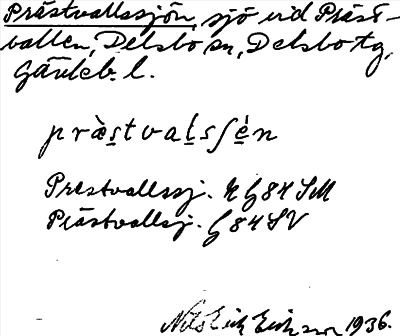 Prästvallssjön, sjö vid Präst-
vallen, Delsbo sn, Delsbo tg,
Gävleb. l.
præ̀s̱tvaḻsʃè̱n
Prestvallssj. R G84 SM
Prästvallsj. G 84 SV
Nils Erik Eriksson 1936.